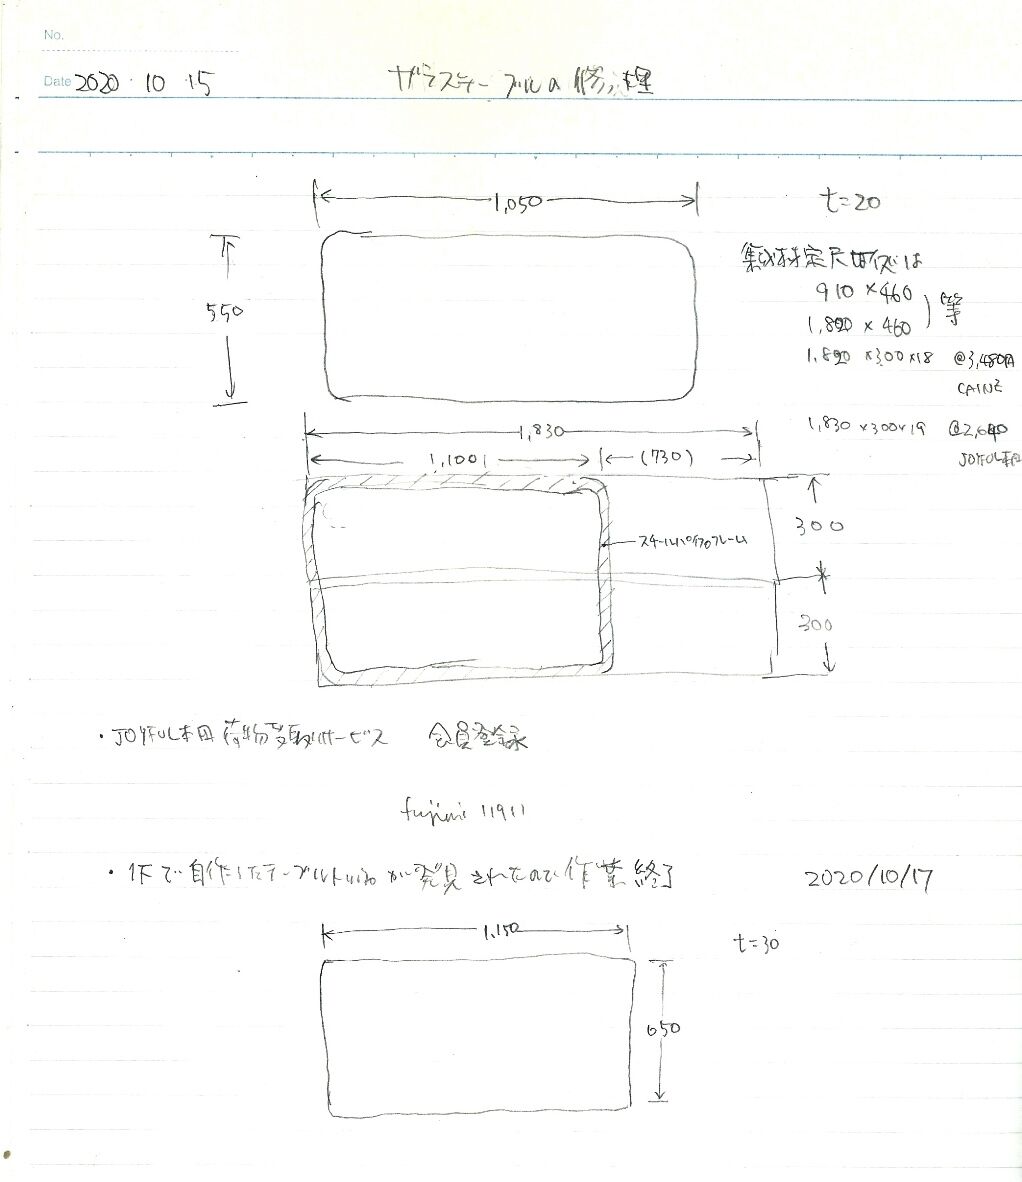 No.
Date 2020・10・15
ガラステーブルの修理
1,050
t=20
550
集成材定尺
910×460
1,820×460
等
1,820×300×18 @3,480円
CAINZ
1,830
1,830×300×19 @2,640
JOYFUL本田
1,100
(730)
300
スチールパイプのフレーム
300
・JOYFUL本田 荷物受取サービス 会員登録
fujimi 11911
自作したテーブル が発見されたので作業終了
2020/10/17
1,150
t=30
650